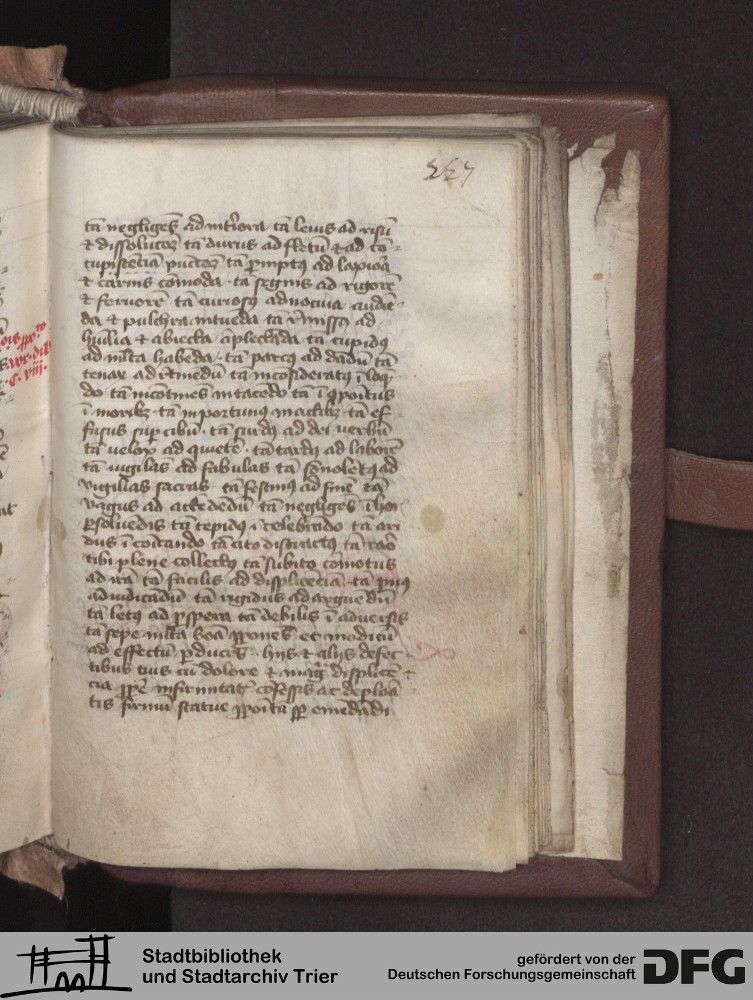 247
tā negligēs ad īntīora tā leuis ad risū
& dissolucōz tā durus ad fletū & ad cō-
cupiscēciā pūctōz tā prōmptꝰ ad laxiora
& carnis cōmoda · tā segnis ad rigorē
& feruorē tā curiosꝰ ad noua audiē-
da & pulchra intuēda tā remissꝰ ad
hūilia & abiecta āplectēda tā cupidꝰ
ad mlta habēda · tā parcꝰ ad dādū tā
tenax ad retinēdū tā incōsideratꝰ ī loq̄-
do tā incōtinēs in tacēdo tā īcōpositus
ī moribꝫ · tā inportunꝰ in actibꝫ tā ef-
fusus sup cibū · tā surdꝰ ad dei verbū
tā velox ad quietē · tā tardꝰ ad laborē
tā vigilās ad fabulas tā sōnolētꝰ ad
vigilias sacras · tā festinꝰ ad finē tā
vagus ad attēdēdū tā negligēs ī hoī
psoluēdis tā tepidꝰ ī celebrādo tā ari
dus ī cōicando tā cito distractꝰ tā raro
tibi plene collectꝰ tā subito cōmotus
ad irā tā facilis ad displicēciā · tā pnꝰ
ad iudicādū tā rigidus ad arguēdū
tā letꝰ ad pspera tā debilis ī aduersis
tā sepe mlta bōa ꝓponēs et modicū
ad effectū pducēs · hijs & alijs defec
tibus tuis cū dolore & mag̃ displicē-
cia ꝓprie infirmitatꝭ cōfessis ac deplora
tis firmū statue ꝓpositū sp emēdādi
Stadtbibliothek
und Stadtarchiv Trier
gefördert von der
Deutschen Forschungsgemeinschaft
DFG